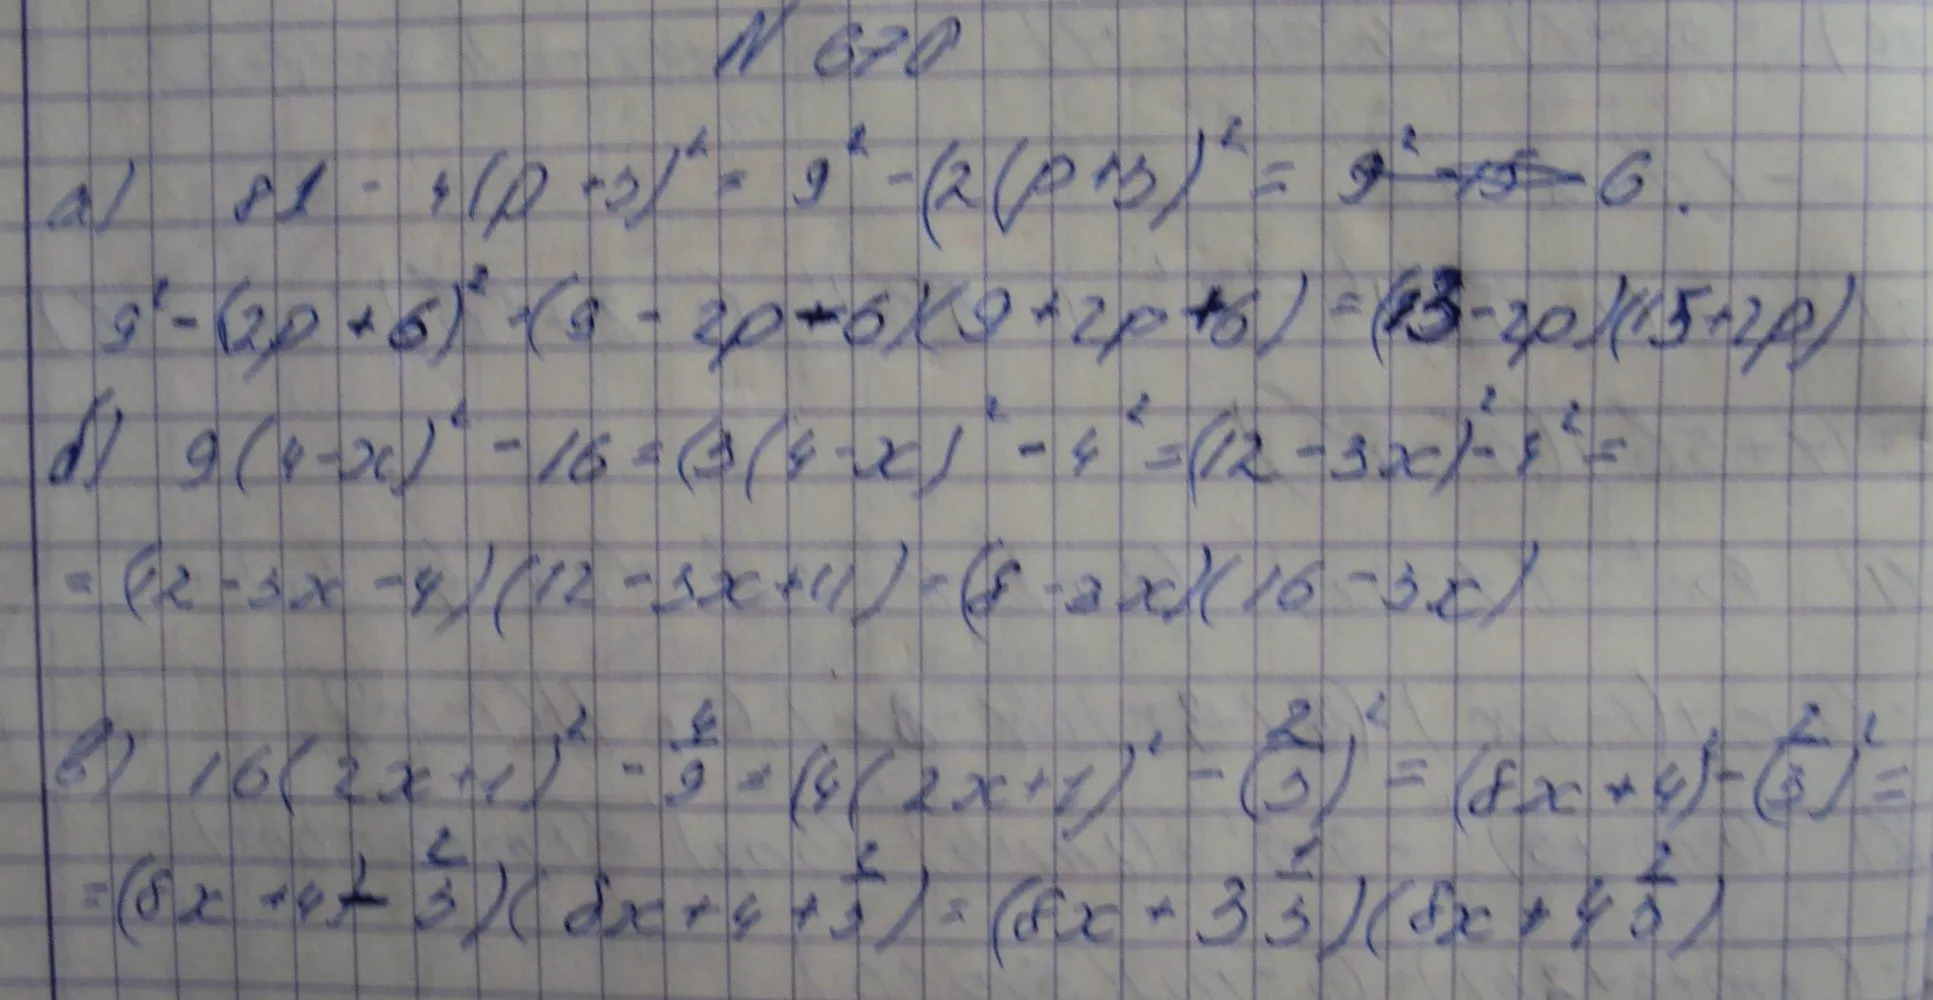 N 670
а) 81 - 4(p+3)² = 9² - (2(p+3)² = 9² - 6.
9² - (2p+6)² - (9 - 2p - 6)(9 + 2p + 6) = (3 - 2p)(15 + 2p)
б) 9(4-x)² - 16 = (3(4-x)² - 4² = (12 - 3x)² - 4² =
= (12 - 3x - 4)(12 - 3x + 4) = (8 - 3x)(16 - 3x)
в) 16(2x+1)² - 4/9 = (4(2x+1)² - (2/3)² = (8x+4)² - (2/3)² =
= (8x + 4 - 2/3)(8x + 4 + 2/3) = (8x + 3 1/3)(8x + 4 2/3)